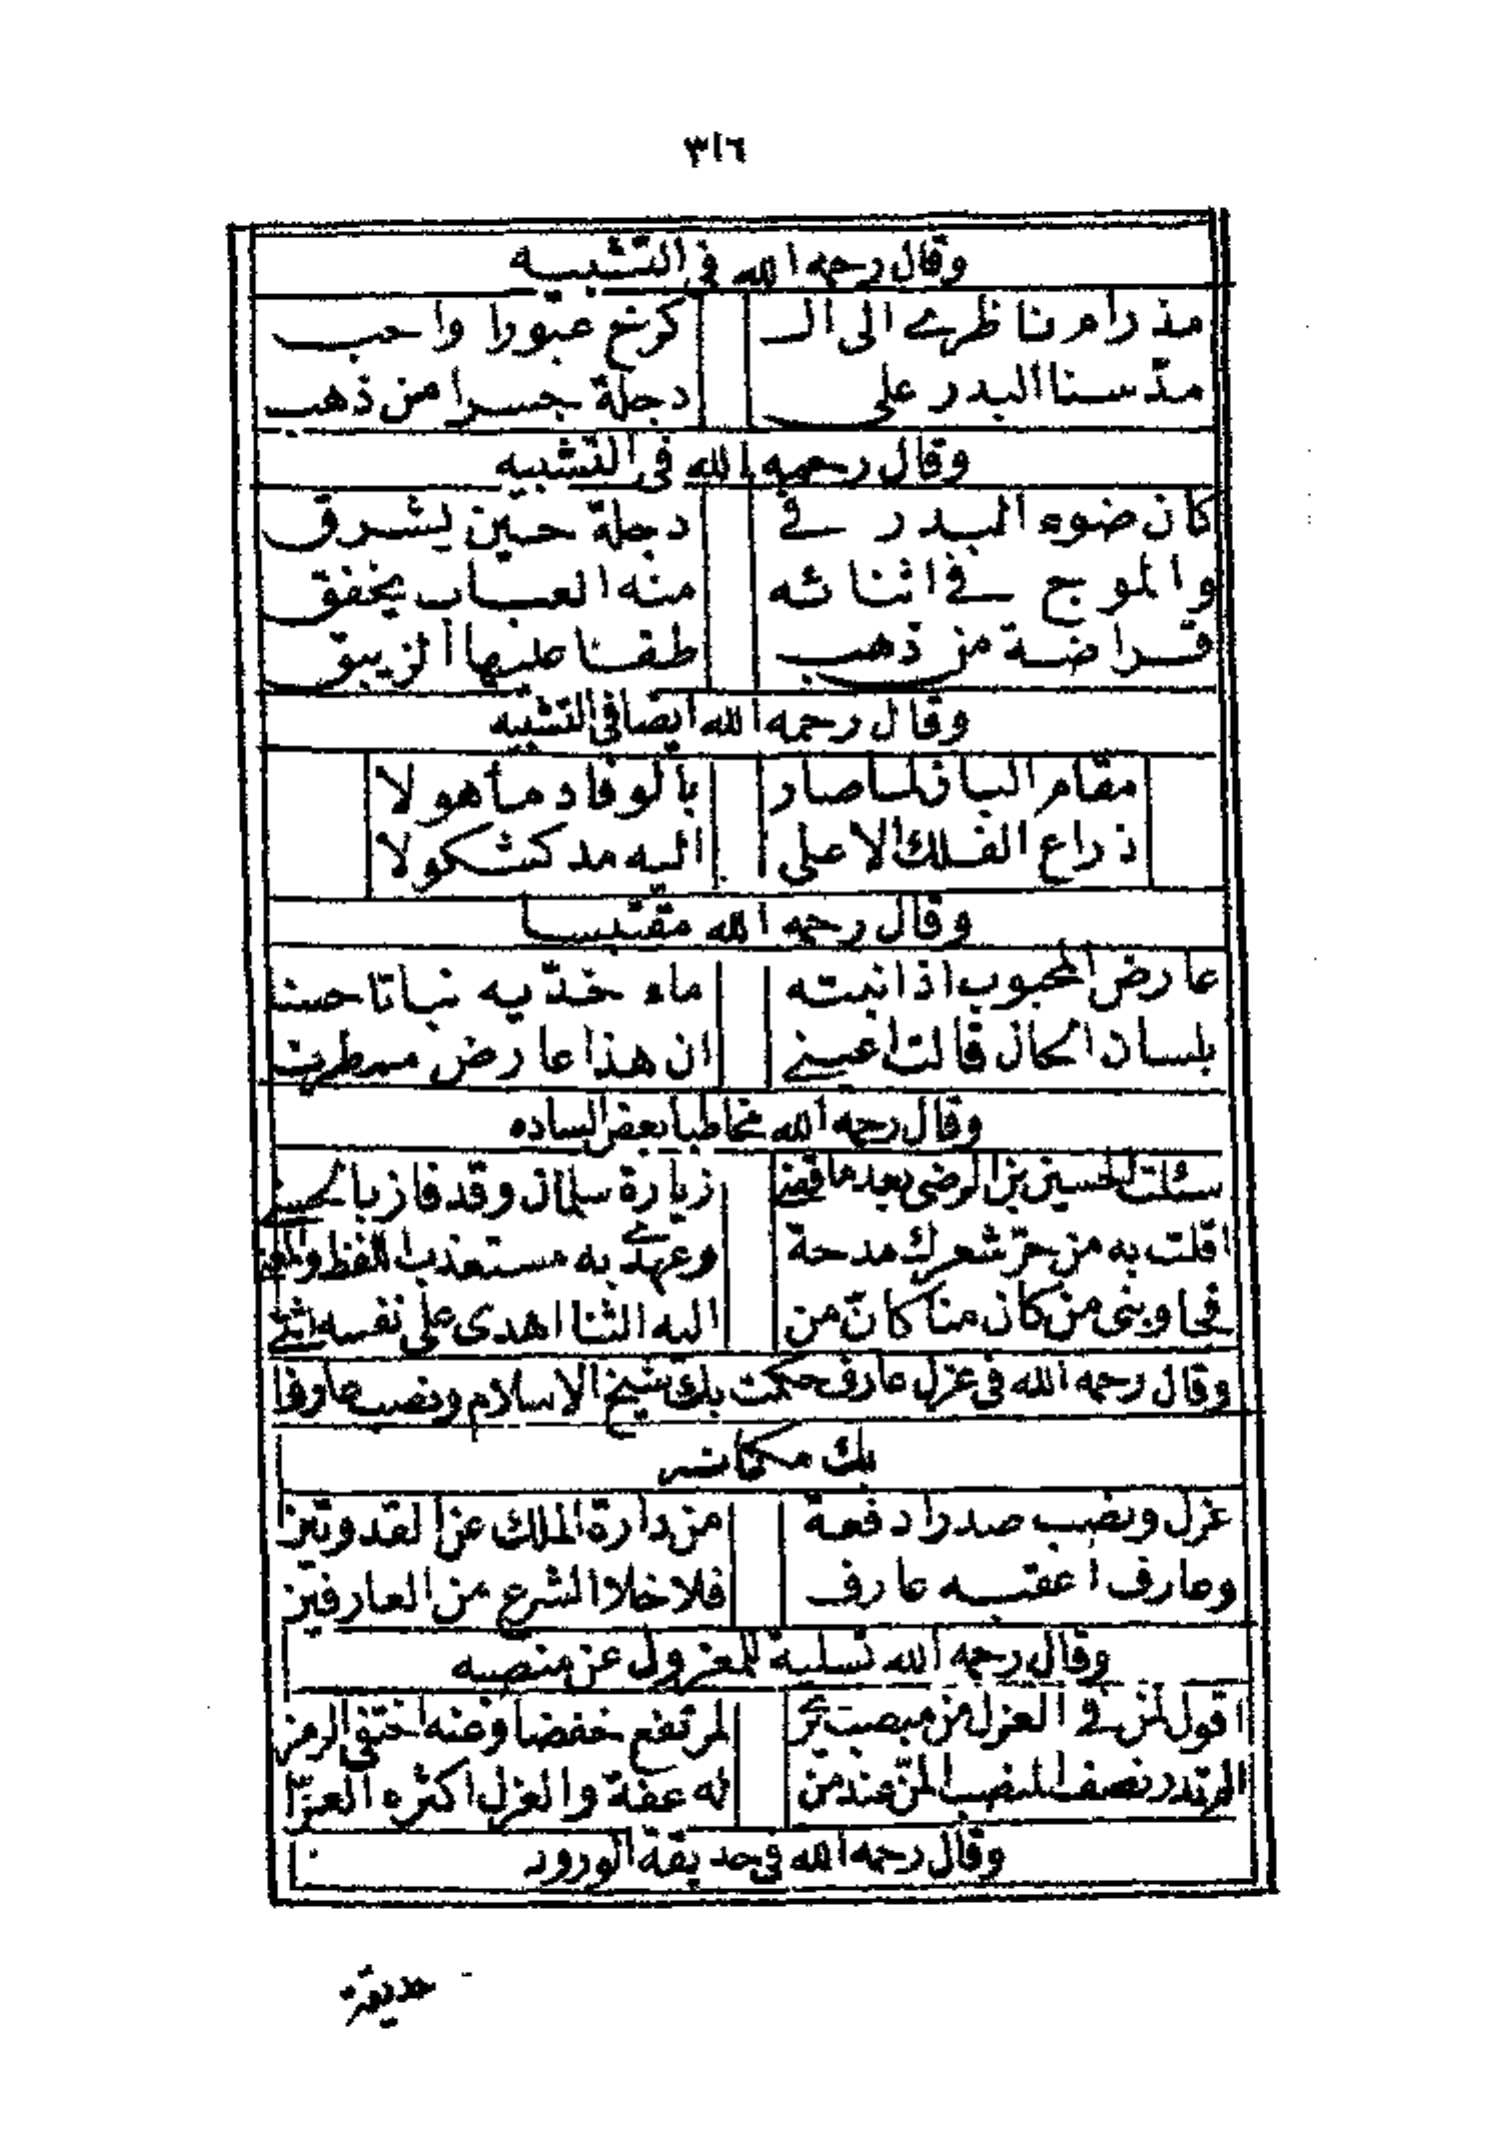 ٣١٦
وقال رحمه الله في التشبيه
مذ رام ناظرے الى الـ كرخ عبورا واحب
مدّ سنا البدر على دجلة جسرا من ذهب
وقال رحمه الله في التشبيه
كان ضوء البدر في دجلة حين يشرق
والموج في اثنائه منه العباب يخفق
قراضة من ذهب طفا عليها الزيبق
وقال رحمه الله ايضا في التشبيه
مقام الباز لما صار بالوفاد مأهولا
ذراع الفلك الاعلى اليه مد كشكولا
وقال رحمه الله مقتبسا
عارض المحبوب اذ انبته ماء خدّيه نباتا حسنا
بلسان الحال قالت اعينے ان هذا عارض ممطرنا
وقال رحمه الله مخاطبا بعض الساده
سئلت الحسين بن الرضى بعد ما قضے زيارة سلمان وقد فاز بالحسنے
اقلت به من حرّ شعرك مدحة وعهدے به مستعذب اللفظ والمعنے
فجاوبنى من كان منا كانّ من اليه الثنا اهدى على نفسه اثنے
وقال رحمه الله في عزل عارف حكمت بك شيخ الاسلام ونصب عارف
بك مكانه
عزل ونصب صدرا دفعة من دارة الملك عن
وعارف اعقبه عارف فلا خلا الشرع من العارفين
وقال رحمه الله تسلية للمعزول عن منصبه
اقول لمن في العزل من منصب لمرتفع خفضا وعنه اختفى الرمز
الم تدر نصف المنصب النصّ عند من له عفة والعزل اكثره العزّ
وقال رحمه الله في حديقة الورود
حديقة